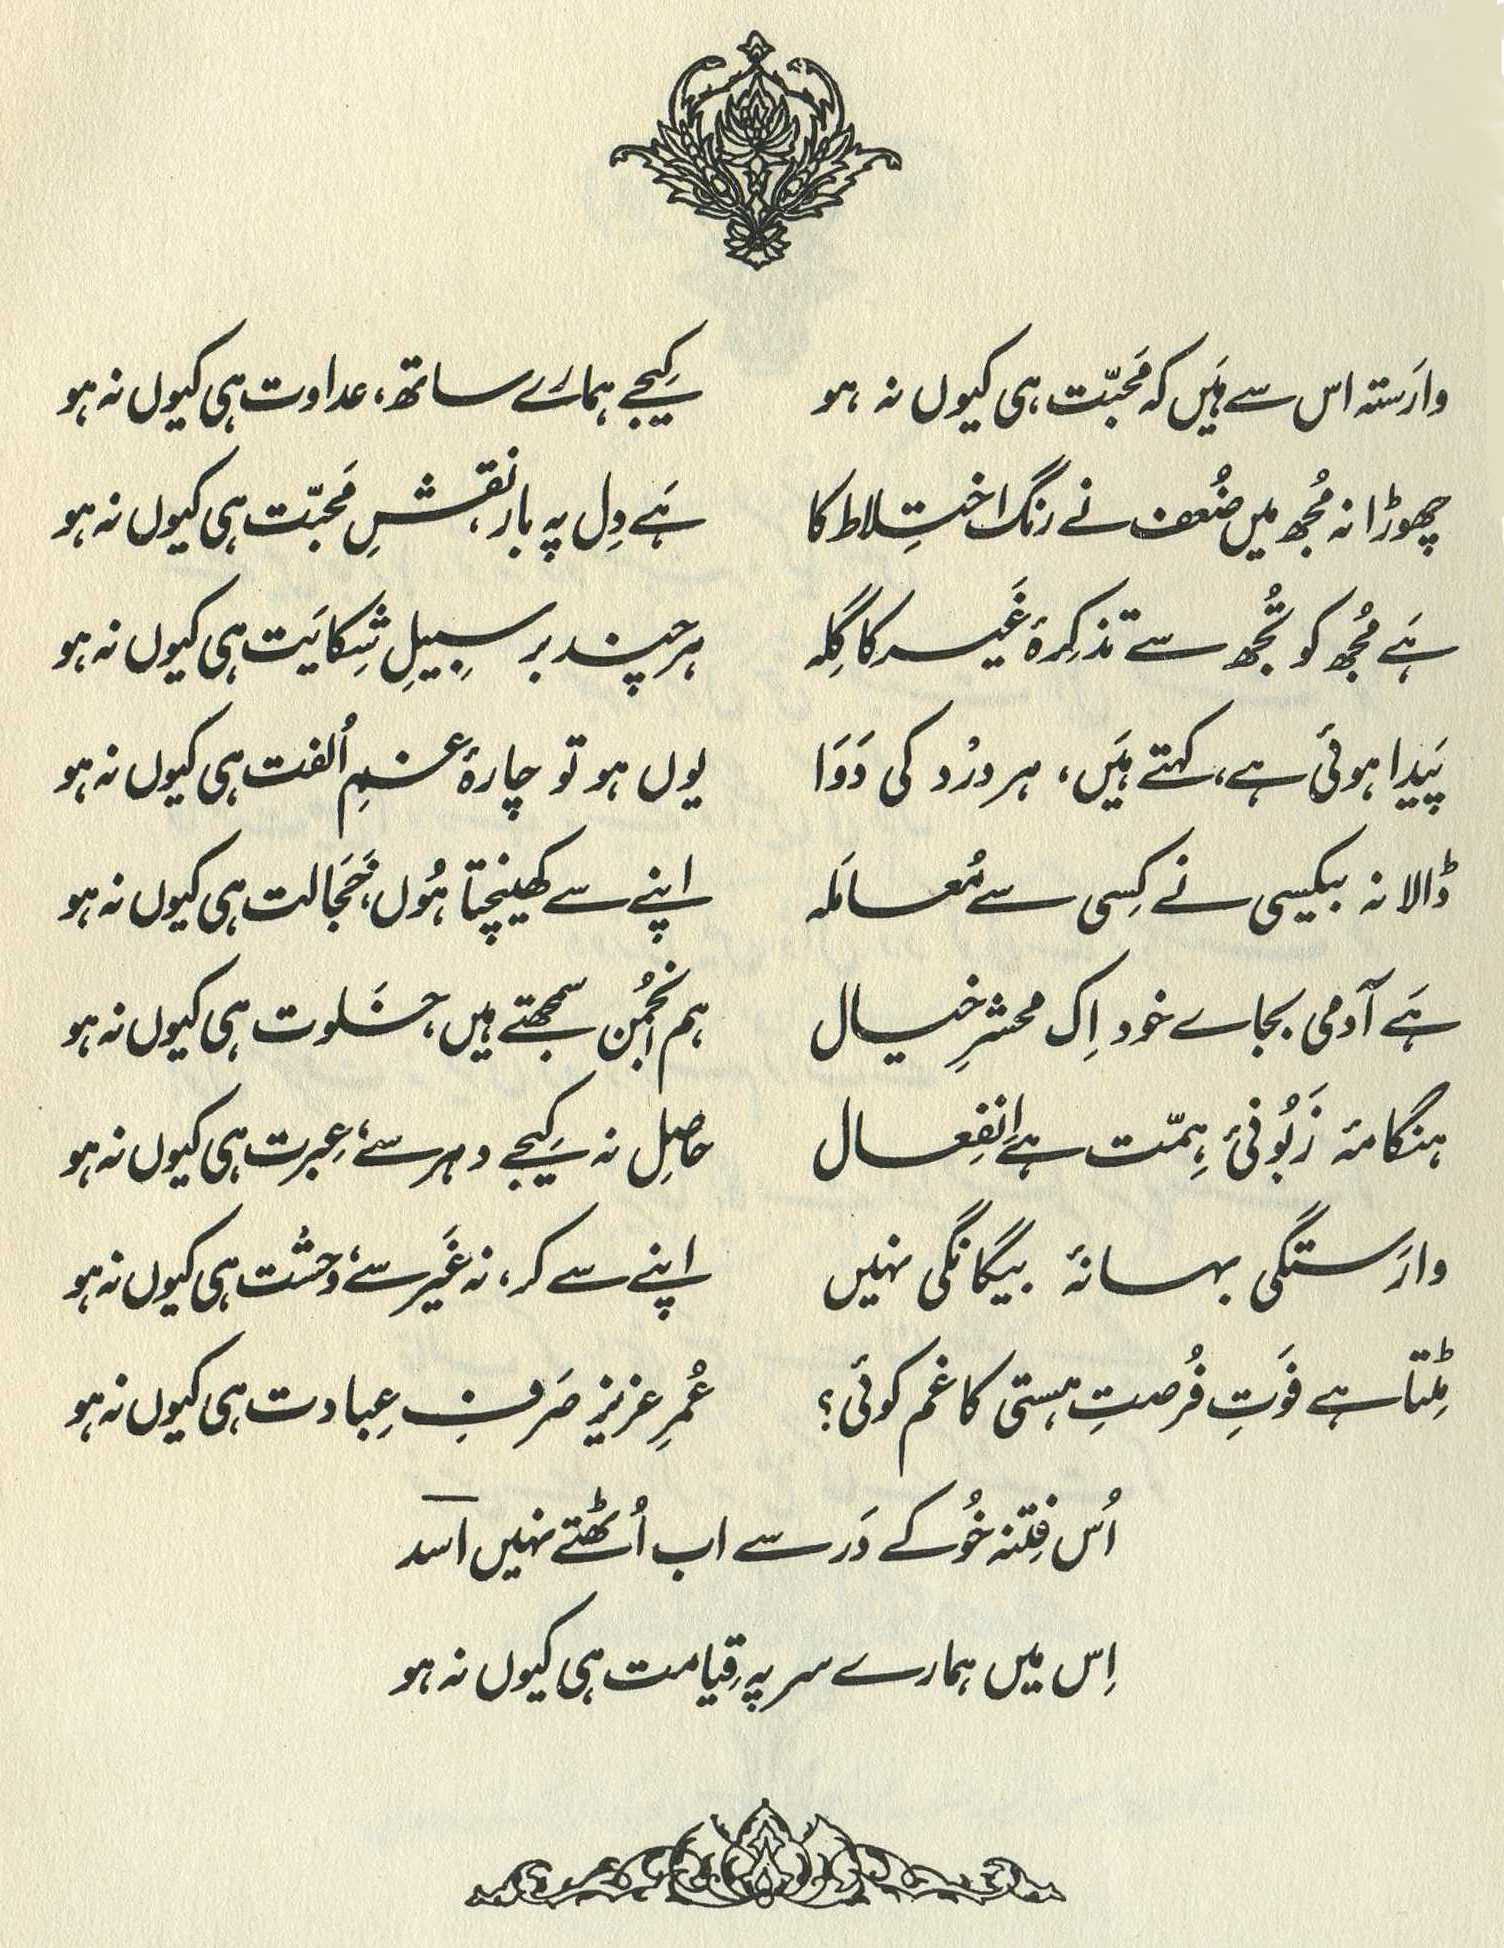 وارَستہ اس سے ہَیں کہ مَحبّت ہی کیوں نہ ہو کیجے ہمارے ساتھ، عداوت ہی کیوں نہ ہو
چھوڑا نہ مُجھ میں ضُعف نے رنگ اختِلاط کا ہَے دِل پہ بار، نقشِ مَحبّت ہی کیوں نہ ہو
ہَے مُجھ کو تُجھ سے تذکِرۂ غَیر کا گِلہ ہر چند بر سبِیلِ شِکایَت ہی کیوں نہ ہو
پَیدا ہوئی ہے، کہتے ہَیں، ہر درْد کی دَوَا یوں ہو تو چارۂ غمِ اُلفت ہی کیوں نہ ہو
ڈالا نہ بیکسی نے کِسی سے مُعامَلہ اپنے سے کھینچتا ہُوں، خَجَالت ہی کیوں نہ ہو
ہَے آدمی بجاے خود اِک محشرِ خیال ہم انجُمن سمجھتے ہیں، خَلوت ہی کیوں نہ ہو
ہنگامۂ زَبُونیِٔ ہِمّت ہے اِنفِعال حاصِل نہ کیجے دہر سے، عِبرت ہی کیوں نہ ہو
وارَستگی بہانۂ بیگانگی نہیں اپنے سے کر، نہ غَیر سے، وحشت ہی کیوں نہ ہو
مِٹتا ہے فَوَتِ فُرصتِ ہستی کا غم کوئی؟ عُمرِ عزیز صَرفِ عِبادت ہی کیوں نہ ہو
اُس فِتنہ خُو کے دَر سے اب اُٹھتے نہیں اسد
اِس میں ہمارے سر پہ قِیامت ہی کیوں نہ ہو